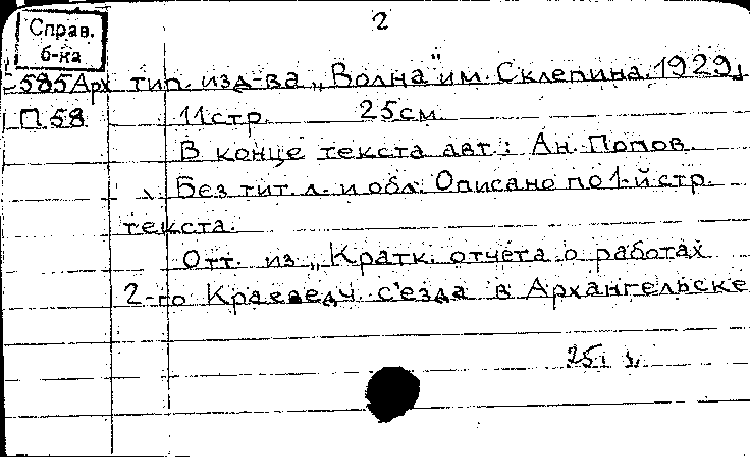 2
Справ.
б-ка
585Арх тип. изд-ва „Волна" им. Склепина. 1929.
П.58 11стр. 25см.
В конце текста авт.: Ан. Попов.
Без тит. л. и обл. Описано по 1-й стр.
текста.
Отт. из „Кратк. отчёта о работах
2-го Краеведч. с'езда в Архангельске